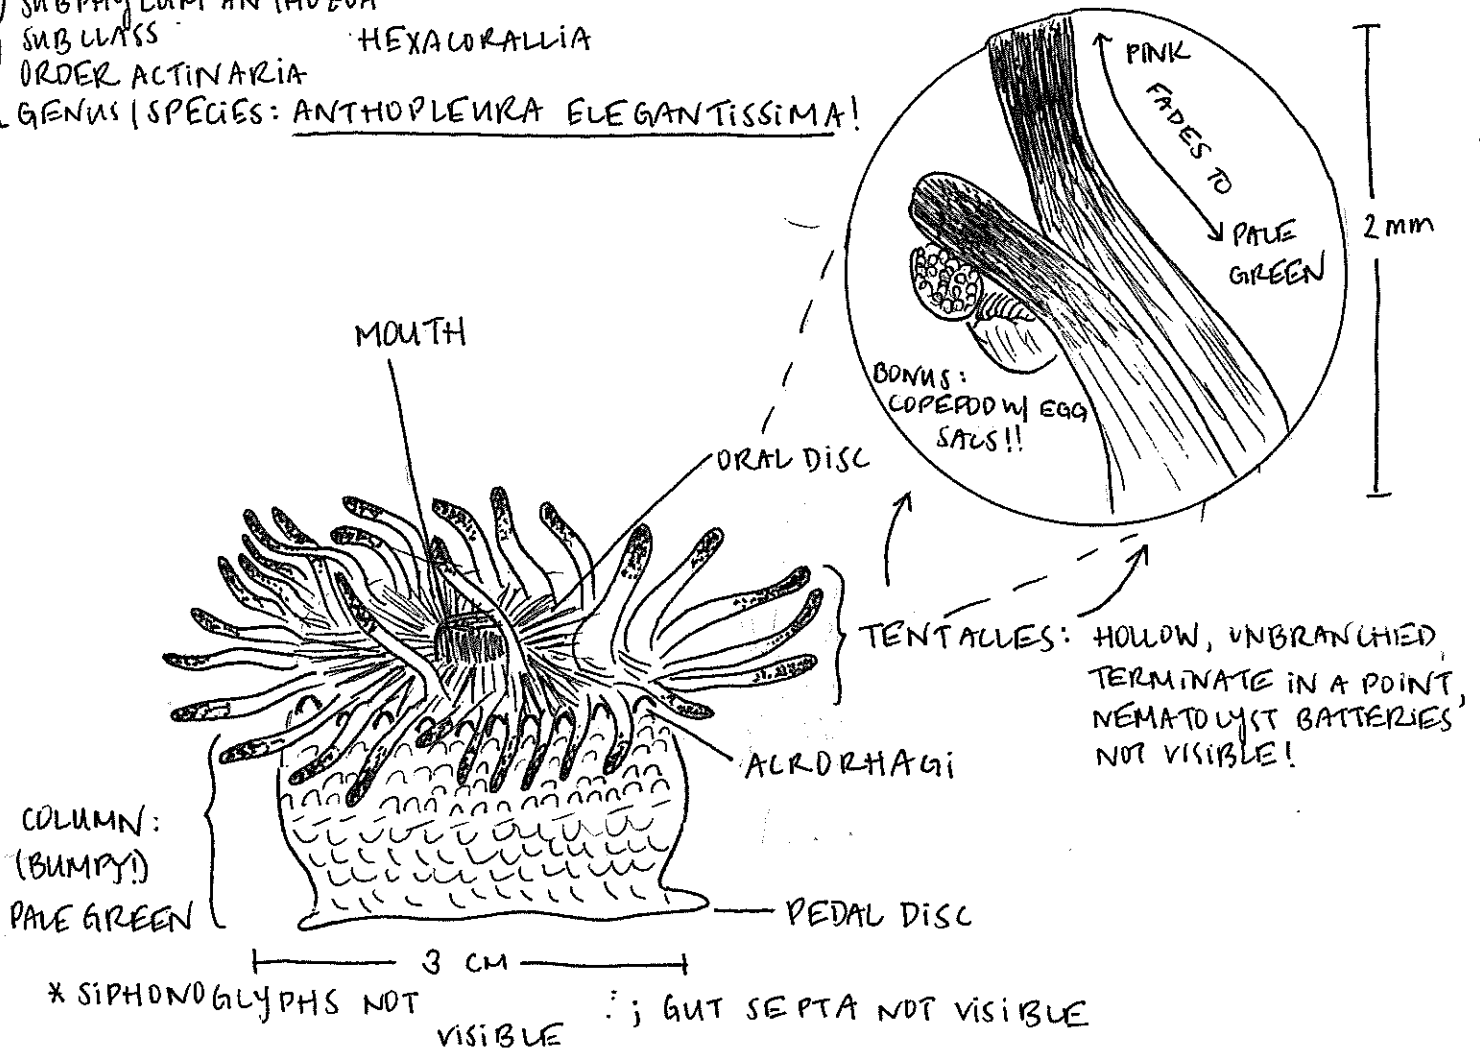 SUBPHYLUM ANTHOZOA
SUBCLASS HEXACORALLIA
ORDER ACTINARIA
GENUS/SPECIES: ANTHOPLEURA ELEGANTISSIMA!
PINK
FADES TO
PALE
GREEN
2mm
BONUS:
COPEPOD W/ EGG
SACS!!
MOUTH
ORAL DISC
TENTACLES: HOLLOW, UNBRANCHED,
TERMINATE IN A POINT,
NEMATOCYST BATTERIES
NOT VISIBLE!
ACRORHAGI
COLUMN:
(BUMPY!)
PALE GREEN
PEDAL DISC
3 CM
* SIPHONOGLYPHS NOT
VISIBLE
; GUT SEPTA NOT VISIBLE